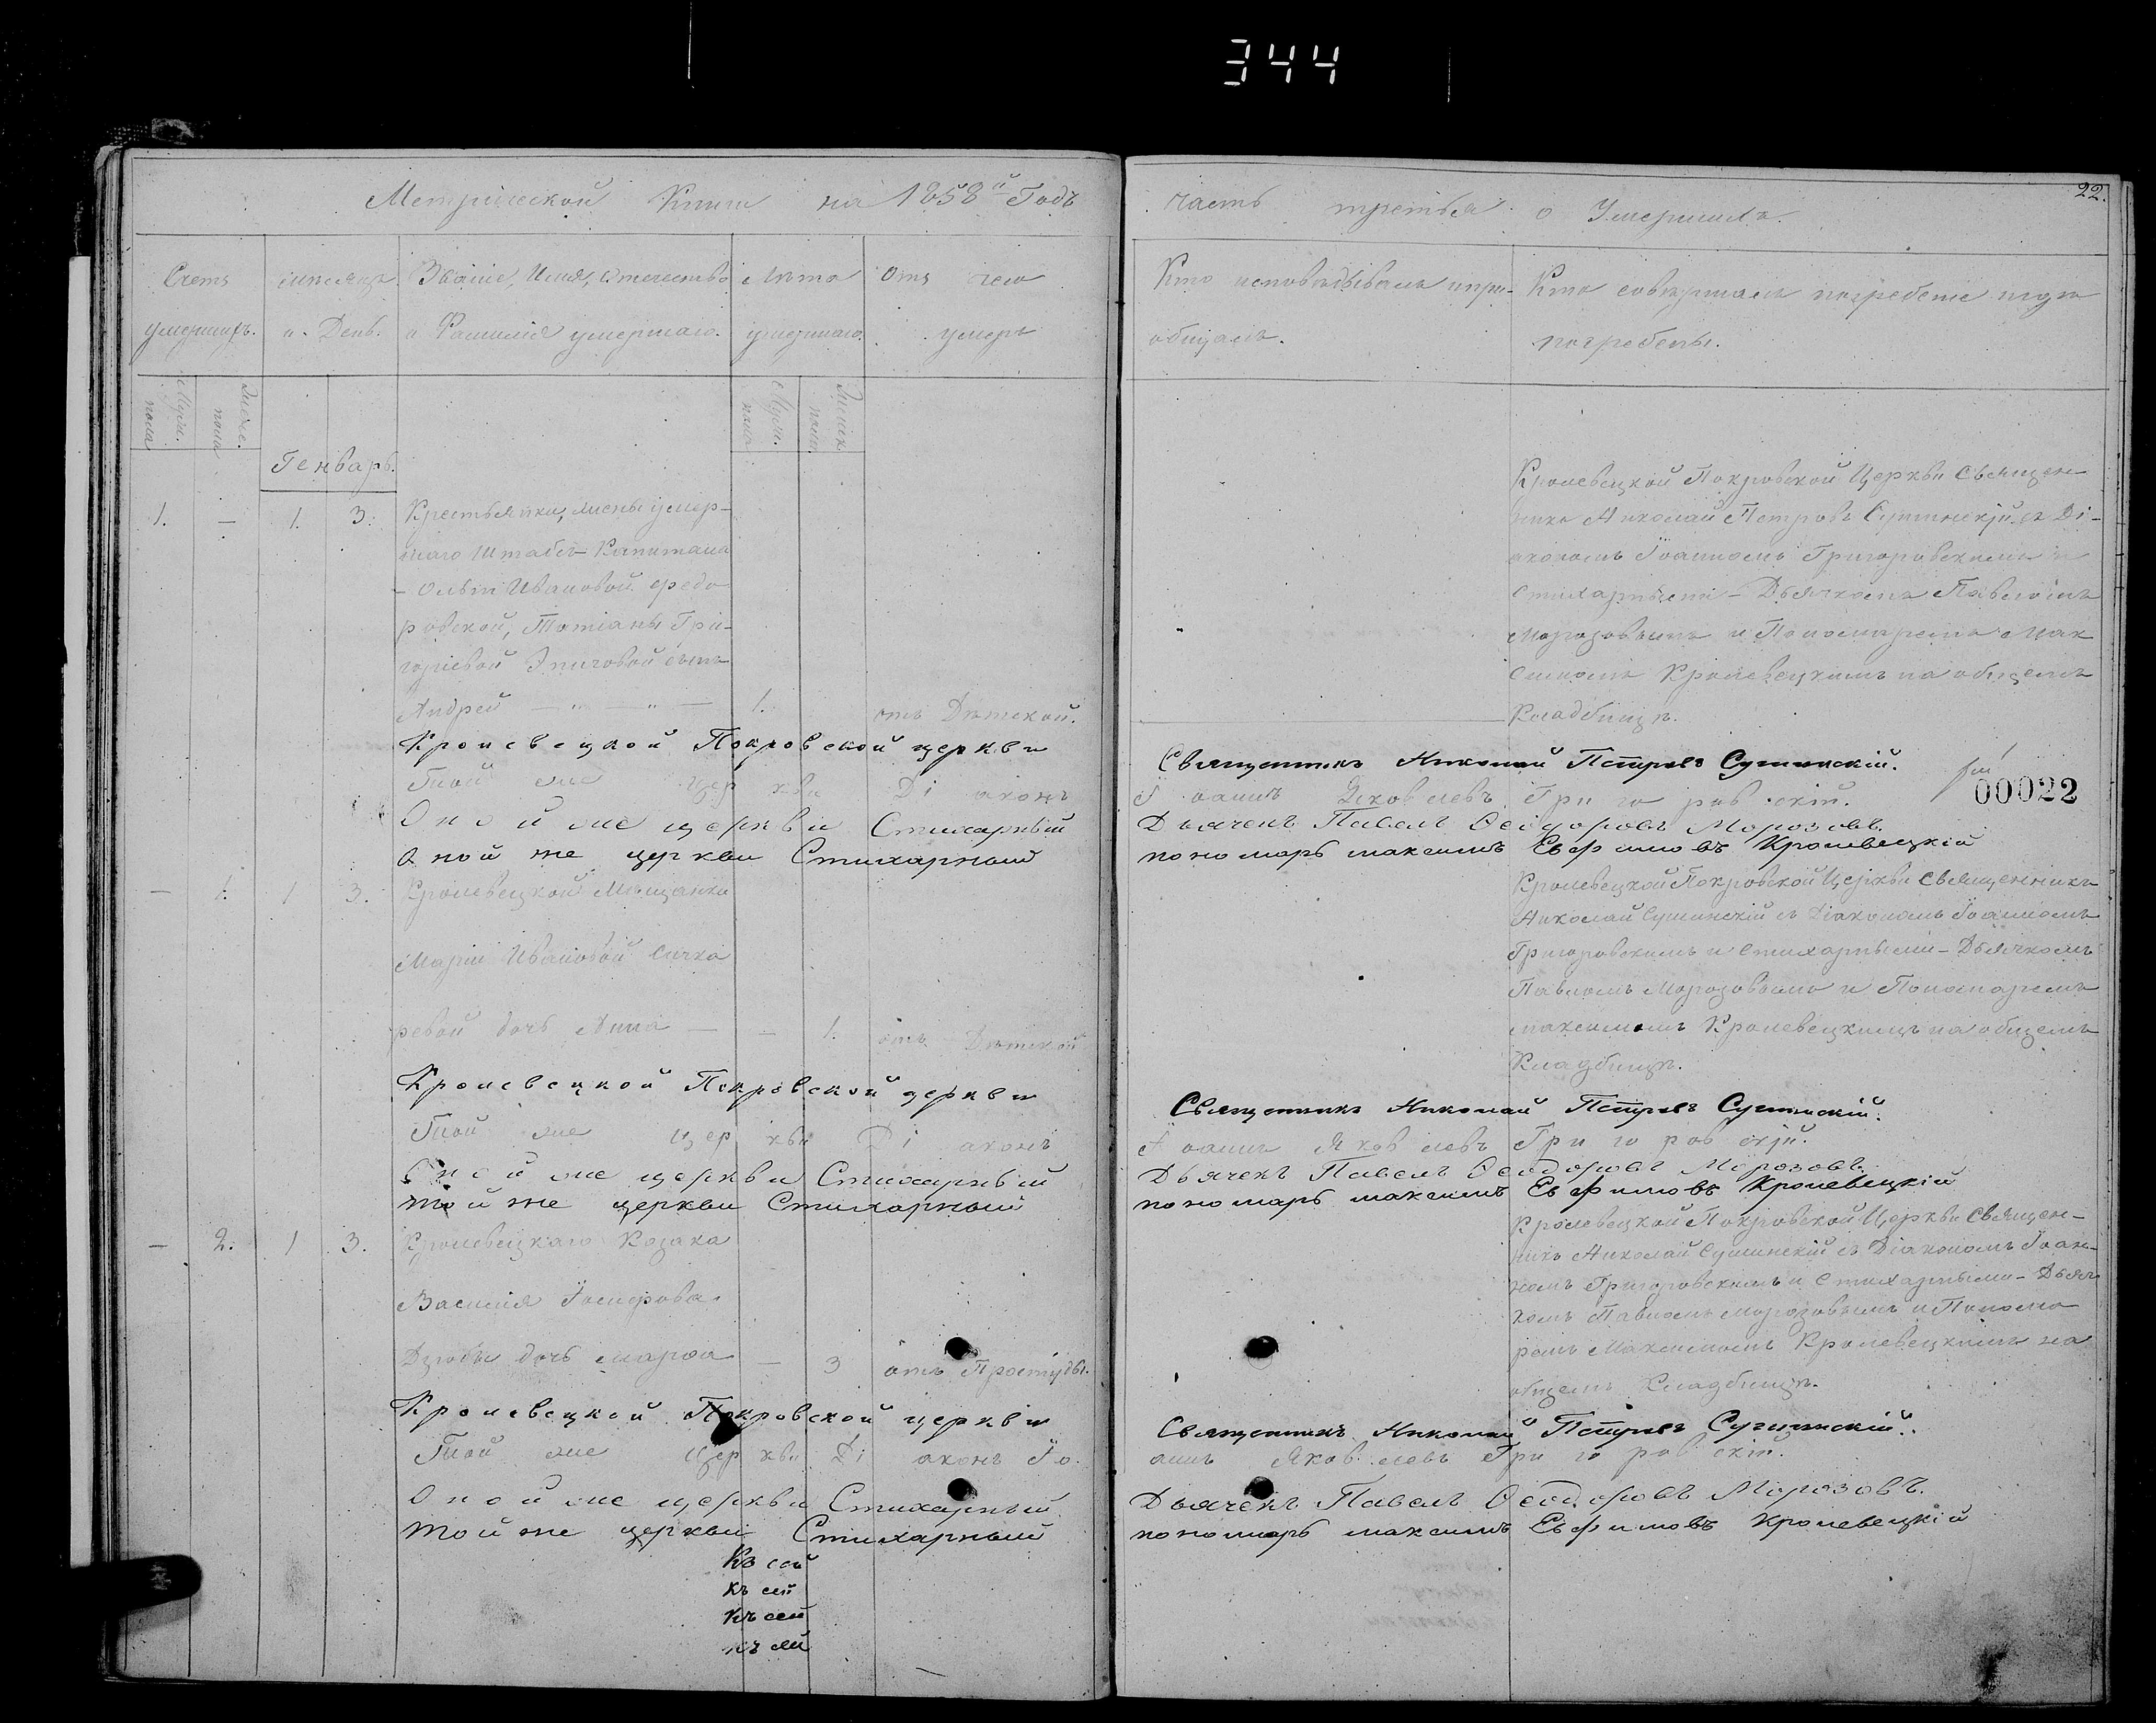 344
22.
Метрической Книги на 1858й Годъ
часть третья о Умершихъ.
Счетъ умершихъ.
мѣсяцъ и День.
Званіе, Имя, отечество и Фамилія умершаго.
Лѣта умершаго.
Отъ чего умеръ
Кто исповѣдывалъ и пріобщалъ.
Кто совершалъ погребеніе и гдѣ погребены.
Муж. пола
Женс. пола
Муж. пола
Женск. пола
Генварь.
1. — 1. 3.
Крестьянки, жены умер-
шаго Штабсъ-Капитана
Ивановой Федо
ровской, Татіаны Гри-
горіевой сынъ
Андрей — „ — „ — 1. отъ Дѣтской.
Кролевецкой Покровской Церкви Священ-
никъ Николай Петровъ Сушинскій съ Ді-
акономъ Іоанномъ Григоровскимъ и
Стихарными - Дьячкомъ Павломъ
Морозовымъ и Пономаремъ Мак
симомъ Кролевецкимъ на общемъ
Кладбищѣ.
Кролевецкой Покровской церкви Священникъ Николай Петровъ Сушинскій.
Той же церкви Діаконъ Іоаннъ Яковлевъ Григоровскій.
00022
Оной же церкви Стихарный Дьячекъ Павелъ Ѳеодоровъ Морозовъ.
Оной же церкви Стихарный пономарь максимъ Евфимовъ Кролевецкій
— 1. 1 3.
Кролевецкой Мѣщанки
Маріи Ивановой Сичка
ревой дочь Анна — — 1. отъ Дѣтской
Кролевецкой Покровской Церкви Священникъ
Николай Сушинскій съ Діакономъ Іоанномъ
Григоровскимъ и Стихарными - Дьячкомъ
Павломъ Морозовымъ и Пономаремъ
максимомъ Кролевецкимъ на общемъ
Кладбищѣ.
Кролевецкой Покровской церкви Священникъ Николай Петровъ Сушинскій.
Той же церкви Діаконъ Іоаннъ Яковлевъ Григоровскій.
Оной же церкви Стихарный Дьячекъ Павелъ Ѳеодоровъ Морозовъ.
той же церкви Стихарный пономарь максимъ Евфимовъ Кролевецкій
— 2. 1 3.
Кролевецкаго Козака
Василія Іосифова
дочь марѳа — 3 отъ Простуды.
Кролевецкой Покровской Церкви Священ-
никъ Николай Сушинскій съ Діакономъ Іоан-
номъ Григоровскимъ и Стихарными - Дьяч
комъ Павломъ Морозовымъ и Понома
ремъ Максимомъ Кролевецкимъ на
общемъ Кладбищѣ.
Кролевецкой Покровской церкви Священникъ Николай Петровъ Сушинскій.
Той же церкви Діаконъ Іоаннъ Яковлевъ Григоровскій.
Оной же церкви Стихарный Дьячекъ Павелъ Ѳеодоровъ Морозовъ.
той же церкви Стихарный пономарь максимъ Евфимовъ Кролевецкій
Къ сей
къ сей
Къ сей
къ сей